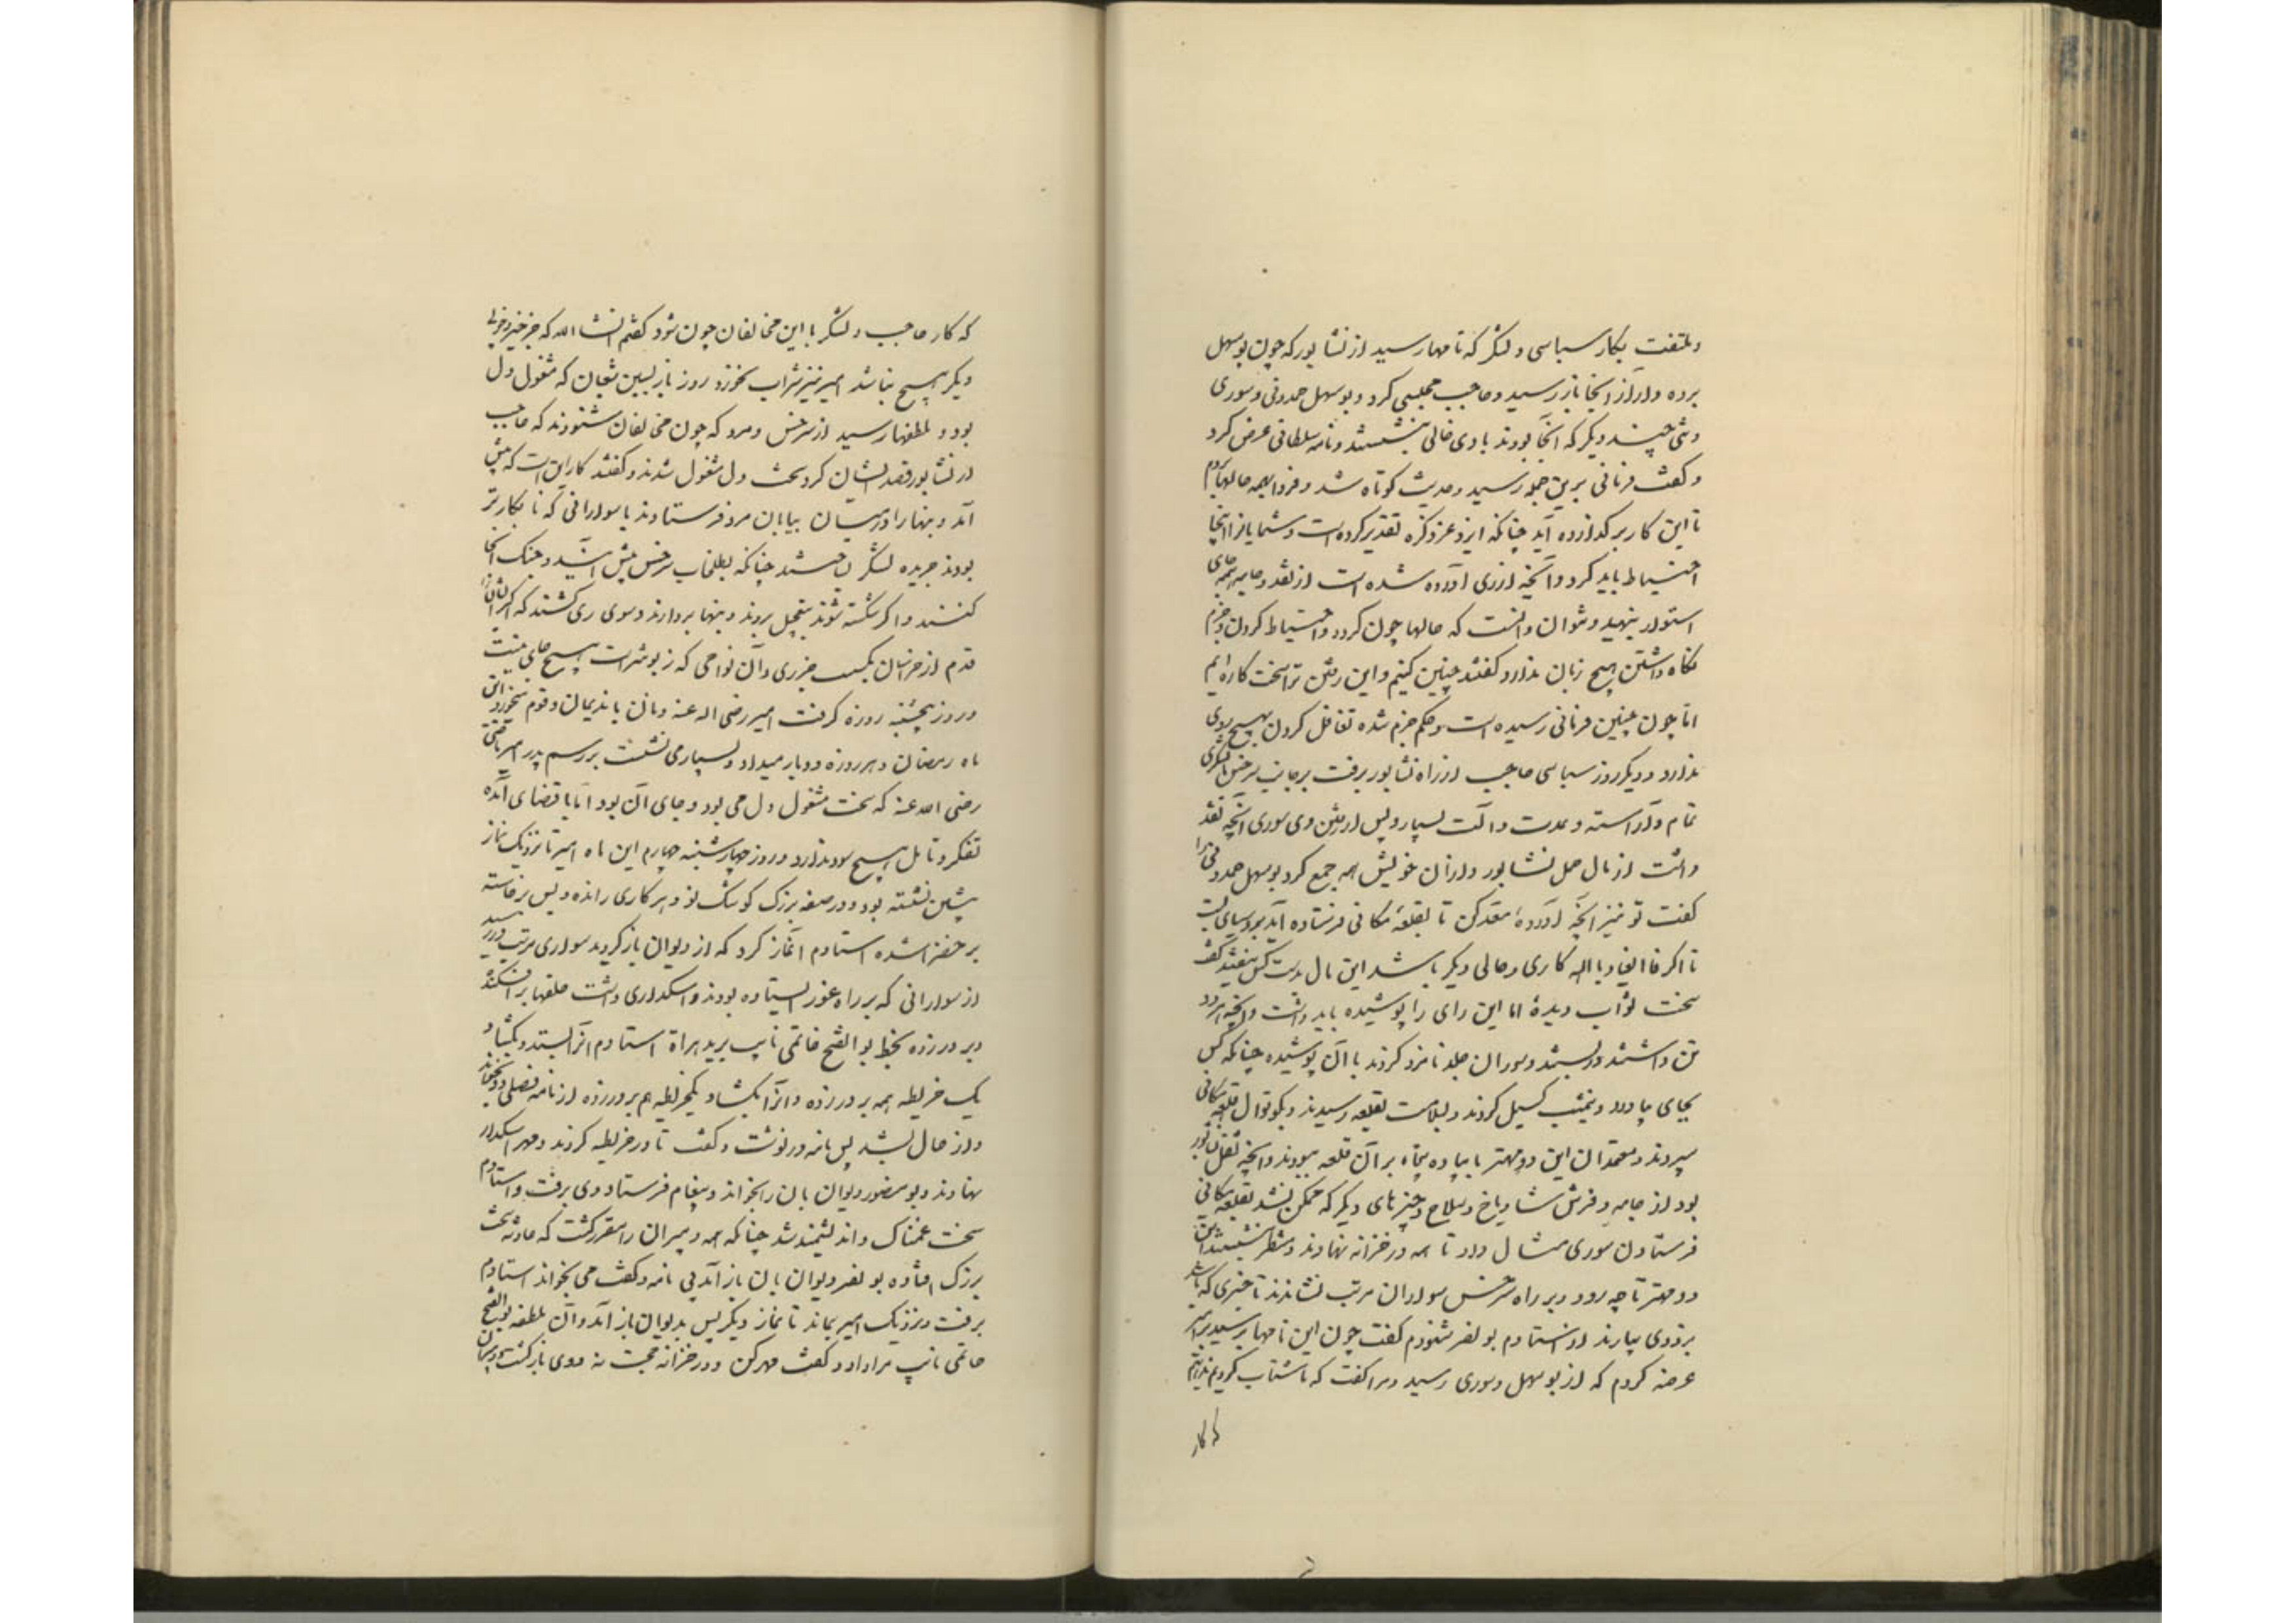 و ملتفت بکار سباسی و لشکر که تا مهار سید از نشابور که چون بوسهل
برده و از آنجا باز رسید و حاجب مجلسی کرد و بوسهل حمدونی و سوری
و تنی چند دیگر که آنجا بودند با وی خالی بنشستند و نامه سلطانی عرض کرد
و گفت فرمانی برین جمله رسید و حدیث کوتاه شد و فردا بهمه حالها بروم
تا این کار برگذارده آید چنانکه ایزد عز ذکره تقدیر کرده است و شمایانرا اینجا
احتیاط باید کرد و آنچه از ری آورده شده است از نقد و جامه بهمه جای
استوار بنهید و نتوان دانست که حالها چون گردد و احتیاط کردن و حزم
نگاه داشتن هیچ زیان ندارد گفتند چنین کنیم و این رفتن ترا سخت کاره ایم
اما چون چنین فرمانی رسیده است و حکم جزم شده تغافل کردن بهیچ روی
ندارد و دیگر روز سباسی حاجب از راه نشابور برفت بر جانب سرخس با لشکری
تمام و آراسته و عدت و آلت بسیار و پس از رفتن وی سوری آنچه نقد
داشت از مال حمل نشابور و از آن خویش همه جمع کرد بوسهل حمدونی را
گفت تو نیز آنچه آورده‌ٔ معد کن تا بقلعهٔ مکانی فرستاده آید
تا اگر فالعیاذ بالله کاری و حالی دیگر باشد این مال بدست کس نیفتد گفت
سخت ثواب دیدهٔ اما این رای را پوشیده باید داشت و آنچه هر دو
تن داشتند در بستند و سواران جلد نامزد کردند با آن پوشیده چنانکه کس
بجای نیاورد و نیمشب گسیل کردند و بسلامت بقلعه رسیدند و بکوتوال قلعهٔ مکانی
سپردند و معتمدان این دو مهتر با پیاده پنجاه بر آن قلعه ببودند و آنچه ثقل نشابور
بود از جامه و فرش شادیاخ و سلاح و چیزهای دیگر که ممکن نشد بقلعهٔ مکانی
فرستادن سوری مثال داد تا همه در خزانه نهادند و منتظر بنشستند این
دو مهتر تا چه رود و بر راه سرخس سواران مرتب نشاندند تا خبری که باشد
بزودی بیارند از استادم بونصر شنودم گفت چون این نامها برسید بر امیر
عرضه کردم که از بوسهل و سوری رسید و مرا گفت که ما شتاب کردیم ندانیم
که کار
که کار حاجب و لشکر با این مخالفان چون شود گفتم انشاالله که جز خیر و خوبی
دیگر هیچ نباشد امیر نیز شراب نخورد روز بازپسین شعبان که مشغول دل
بود و ملطفها رسید از سرخس و مرو که چون مخالفان شنودند که حاجب
از نشابور قصد ایشان کرد سخت دل مشغول شدند و گفتند کار این است که پیش
آمد و بنهارا در میان بیابان مرو فرستادند با سوارانی که نابکارتر
بودند جریده لشکر ساختند چنانکه بطلخاب سرخس پیش آیند و جنگ آنجا
کنند و اگر شکسته شوند بتعجیل بروند و بنها بردارند و سوی ری کشند که اگر ایشانرا
قدم از خراسان بگسست جز ری و آن نواحی که زبونتر است هیچ جای نیست
و روز پنجشنبه روزه گرفت امیر رضی اله عنه و نان با ندیمان و قوم میخورد این
ماه رمضان و هر روزه دو بار میداد و بسیار می نشست بر رسم پدر امیر ماضی
رضی الله عنه که سخت مشغول دل می بود و جای آن بود اما با قضای آمده
تفکر و تامل هیچ سود ندارد و روز چهارشنبه چهارم این ماه امیر تا نزدیک نماز
پیشین نشسته بود در صفهٔ بزرگ کوشک نو و هر کاری رانده و پس برخاسته
بر خضرا شده استادم آغاز کرد که از دیوان باز گردد سواری مرتب در رسید
از سوارانی که بر راه غور ایستاده بودند و اسکداری داشت حلقها برافکنده
و بر در زده بخط بوالفتح خاتمی نایب برید هراة استادم آنرا بستد و بگشاد
یک خریطه همه بر در زده و آنرا بگشاد یکخریطه هم بر در زده از نامه فصلی دو بخواند
و از حال بشد پس نامه در نوشت و گفت تا در خریطه کردند و مهر اسکدار
نهادند و بومنصور دیوان بان را بخواند و پیغام فرستاد و وی برفت و استادم
سخت غمناک و اندیشمند شد چنانکه همه دبیران را مقرر گشت که حادثه سخت
بزرگ افتاده بونصر دیوان بان باز آمد بی نامه و گفت می بخواند استادم
برفت و نزدیک امیر بماند تا نماز دیگر پس بدیوان باز آمد و آن ملطفه بوالفتح
حاتمی نایب مرا داد و گفت مهر کن و در خزانه حجت نه و وی بازگشت